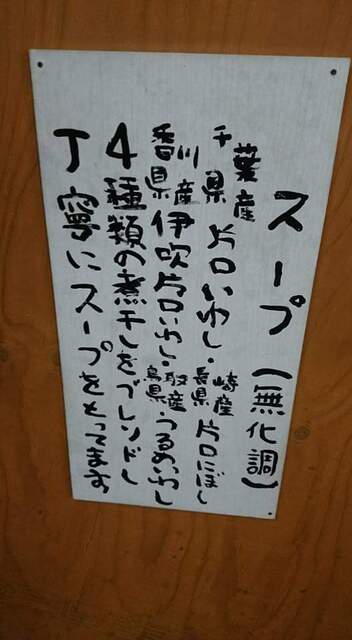 スープ(無化調)
千葉県産片口いわし・長崎県産片口にぼし
香川県産伊吹片口いわし・鳥取県産うるめいわし
4種類の煮干しをブレンドし
丁寧にスープをとってます